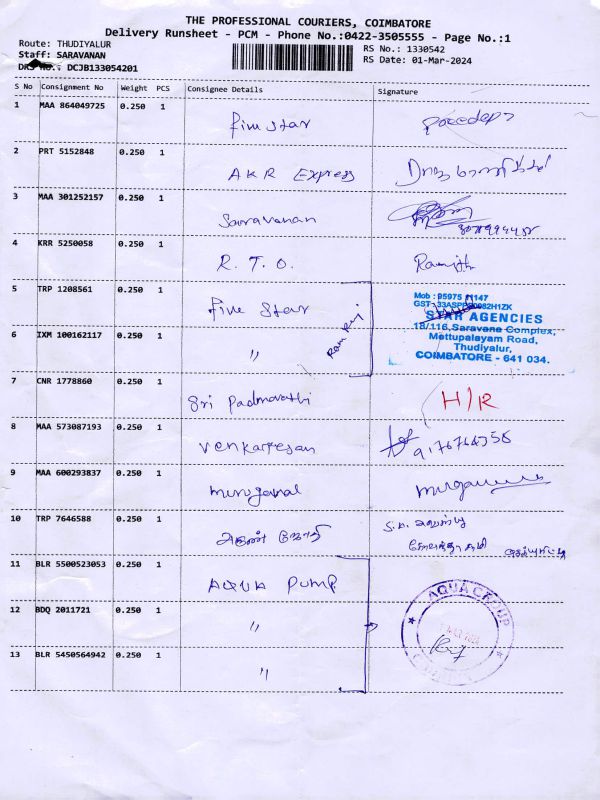 THE PROFESSIONAL COURIERS, COIMBATORE
Delivery Runsheet - PCM - Phone No.:0422-3505555 - Page No.:1
Route: THUDIYALUR
RS No.: 1330542
Staff: SARAVANAN
RS Date: 01-Mar-2024
DRS No.: DCJB133054201
S No Consignment No Weight PCS Consignee Details Signature
1 MAA 864049725 0.250 1 five star
2 PRT 5152848 0.250 1 AKR Express
3 MAA 301252157 0.250 1 Saravanan
4 KRR 5250058 0.250 1 R. T. O. Ranjith
5 TRP 1208561 0.250 1 five star
Mob : 95975 11147
GST : 33ASPPS0082H1ZK
STAR AGENCIES
18/116, Saravana Complex,
Mettupalayam Road,
Thudiyalur,
COIMBATORE - 641 034.
6 IXM 100162117 0.250 1 "
7 CNR 1778860 0.250 1 Sri Padmavathi H/R
8 MAA 573087193 0.250 1 Venkatesan
9 MAA 600293837 0.250 1 murugesan
10 TRP 7646588 0.250 1 அருண் ஜோதி
11 BLR 5500523053 0.250 1 AQUA PUMP
12 BDQ 2011721 0.250 1 "
AQUA GROUP
13 BLR 5450564942 0.250 1 "